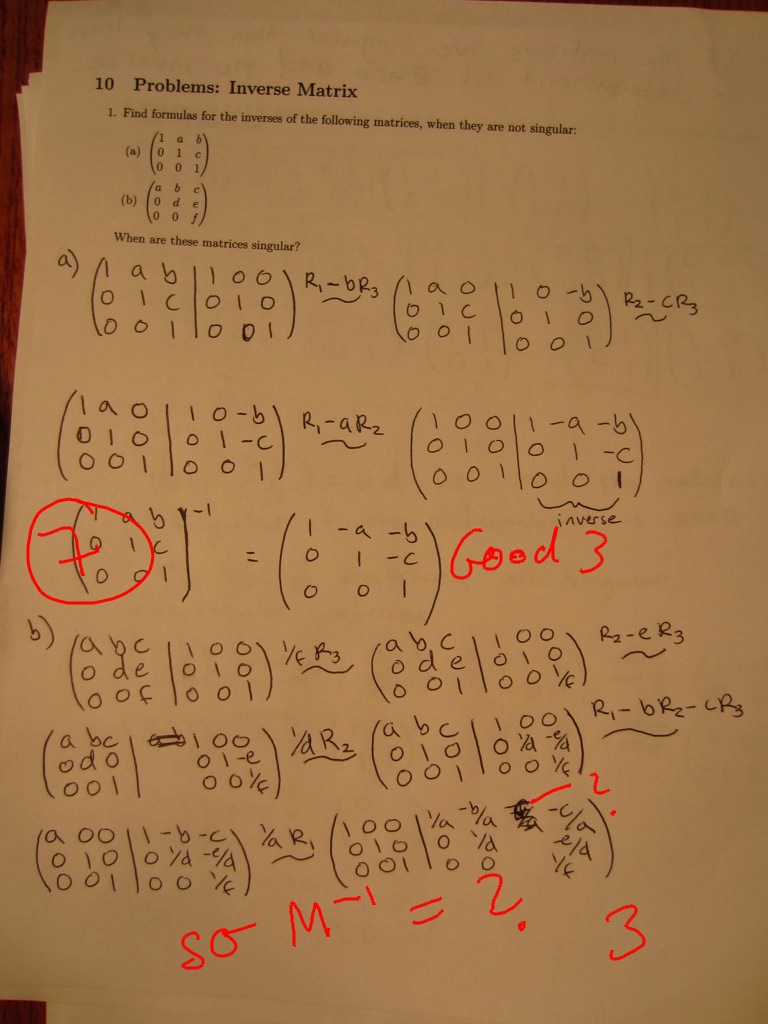 10 Problems: Inverse Matrix
1. Find formulas for the inverses of the following matrices, when they are not singular:
(a) (1 a b
0 1 c
0 0 1)
(b) (a b c
0 d e
0 0 f)
When are these matrices singular?
a) (1 a b | 1 0 0
0 1 c | 0 1 0
0 0 1 | 0 0 1) R₁-bR₃
(1 a 0 | 1 0 -b
0 1 c | 0 1 0
0 0 1 | 0 0 1) R₂-cR₃
(1 a 0 | 1 0 -b
0 1 0 | 0 1 -c
0 0 1 | 0 0 1) R₁-aR₂
(1 0 0 | 1 -a -b
0 1 0 | 0 1 -c
0 0 1 | 0 0 1)
inverse
7
(1 a b
0 1 c
0 0 1)⁻¹
= (1 -a -b
0 1 -c
0 0 1)
Good 3
b) (a b c | 1 0 0
0 d e | 0 1 0
0 0 f | 0 0 1) 1/f R₃
(a b c | 1 0 0
0 d e | 0 1 0
0 0 1 | 0 0 1/f) R₂-eR₃
(a b c | 1 0 0
0 d 0 | 0 1 -e
0 0 1 | 0 0 1/f) 1/d R₂
(a b c | 1 0 0
0 1 0 | 0 1/d -e/d
0 0 1 | 0 0 1/f) R₁-bR₂-cR₃
(a 0 0 | 1 -b -c
0 1 0 | 0 1/d -e/d
0 0 1 | 0 0 1/f) 1/a R₁
(1 0 0 | 1/a -b/a -c/a
0 1 0 | 0 1/d -e/d
0 0 1 | 0 0 1/f)
?
so M⁻¹ = ? 3